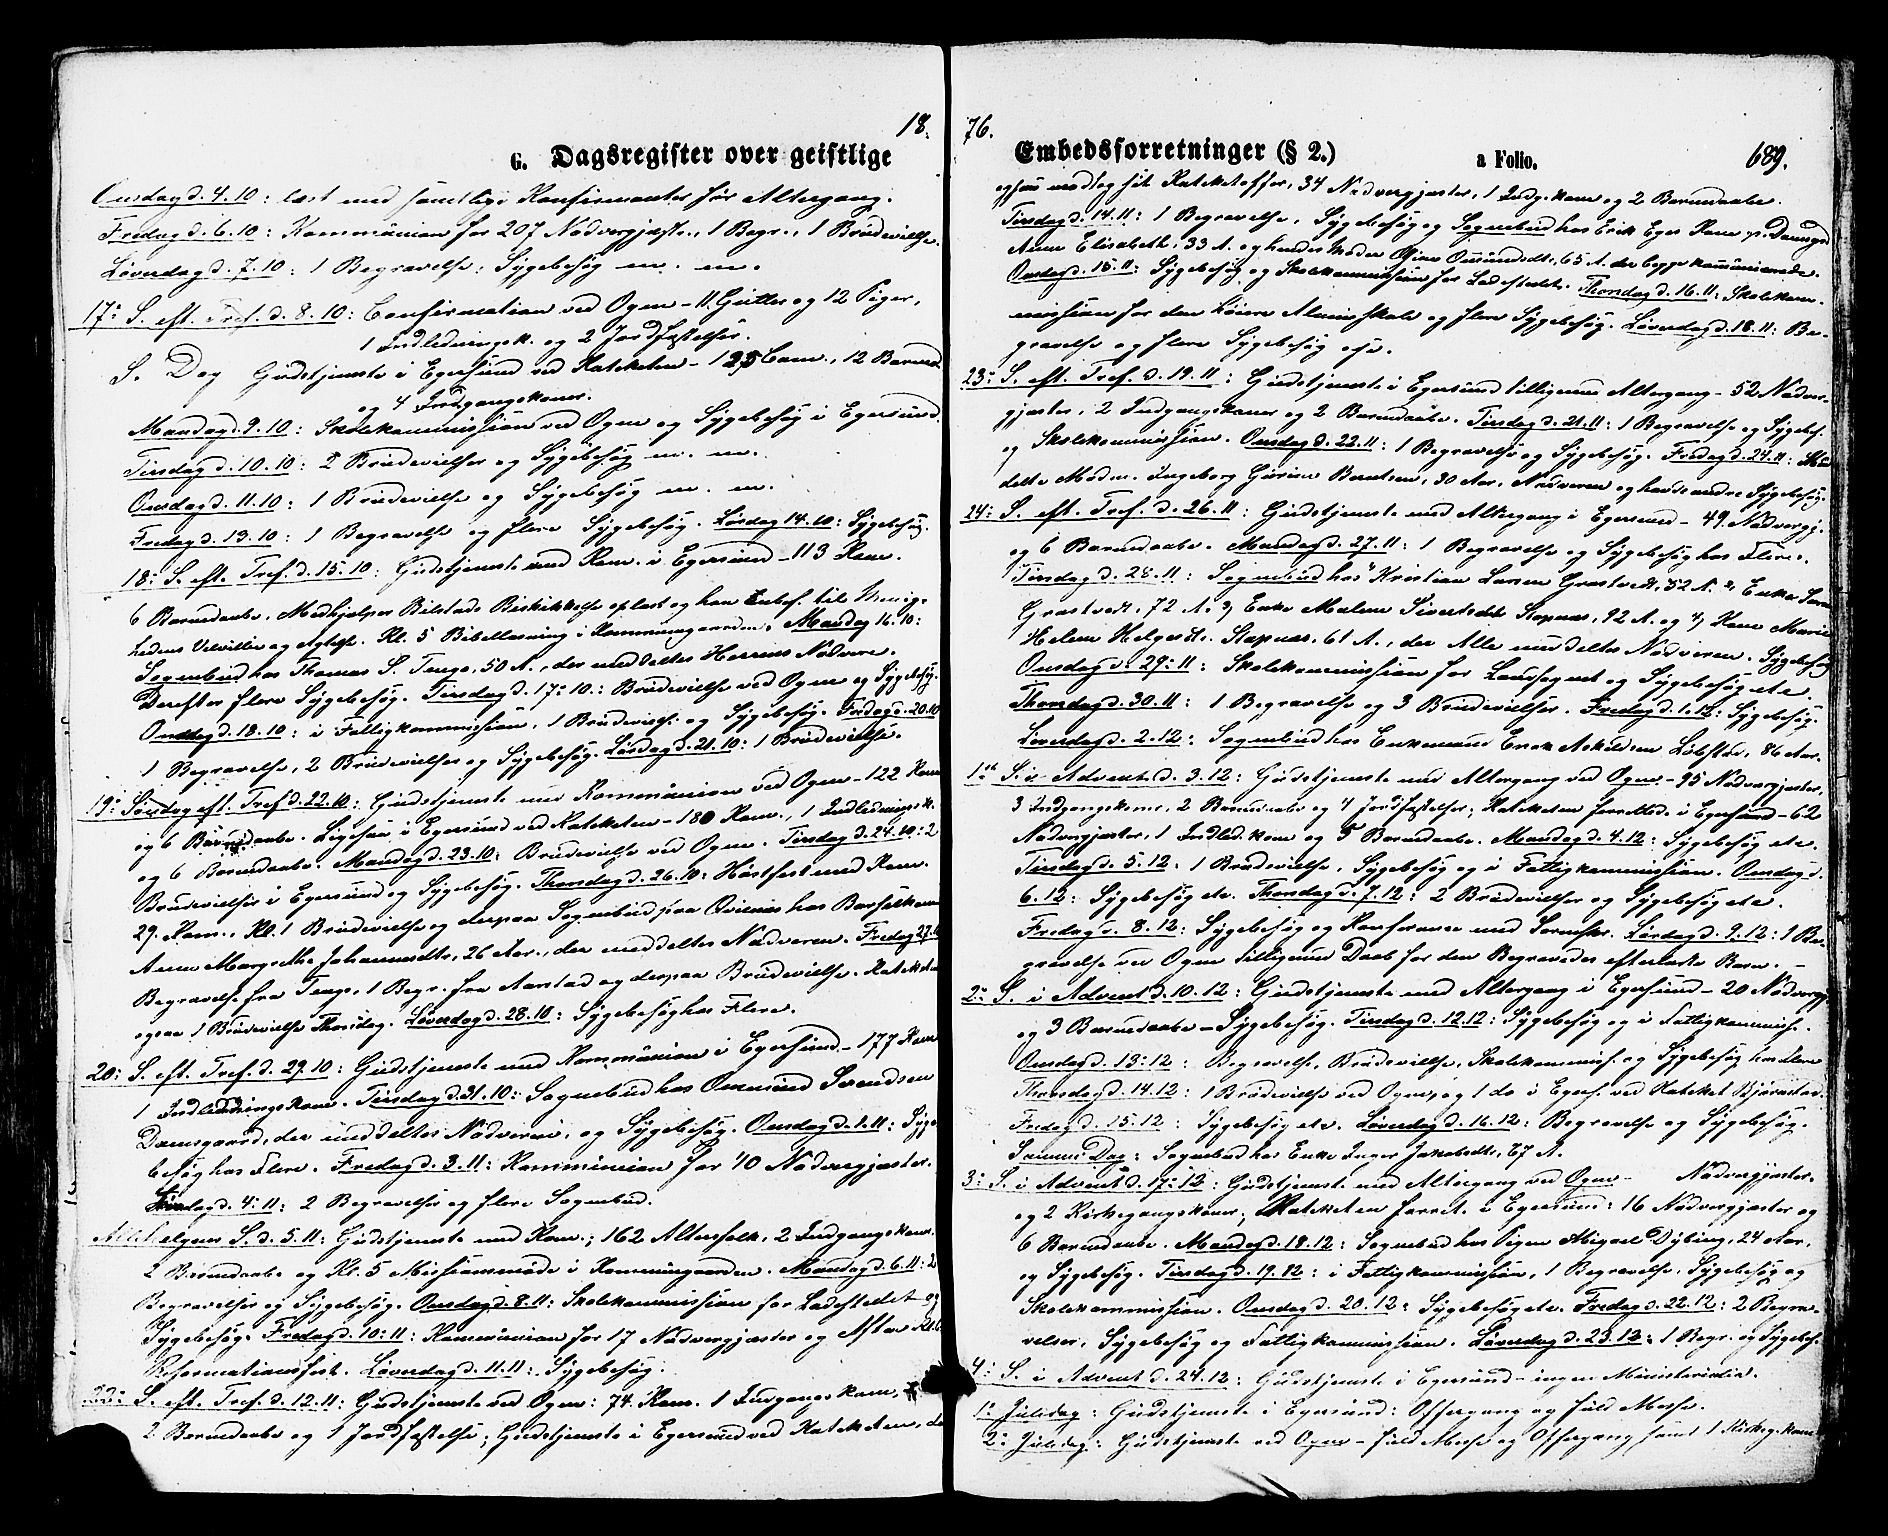 18.
6. Dagsregister over geistlige
Onsdag d. 4.10: læst med samtlige Konfirmanter før Altergang.
Fredag d. 6.10: Kommunion for 207 Nadvergjæste, 1 Begr., 1 Brudevielse.
Løverdag d. 7.10: 1 Begravelse; Sygebesøg m. m.
17: S. eft. Tref. d. 8.10: Confirmation ved Ogne – 11 Gutter og 12 Piger,
1 Indledningsk. og 2 Jordfæstelser.
S. Dag Gudstjeneste i Egersund ved Kateketen – 125 Com., 12 Barned.
og 4 Indgangskoner.
Mandag d. 9.10: Skolekommission ved Ogne og Sygebesøg i Egersund.
Tirsdag d. 10.10: 2 Brudevielser og Sygebesøg m. m.
Onsdag d. 11.10: 1 Brudevielse og Sygebesøg m. m.
Fredag d. 13.10: 1 Begravelse og flere Sygebesøg. Lørsdag 14.10: Sygebesøg.
18: S. eft. Tref. d. 15.10: Gudstjeneste med Kom. i Egersund – 113 Kom.
6 Barnedaabe, Medhjælper Bilstads Beskikkelse oplæst og han anbef. til Menig-
hedens Velvillie og Agtelse. Kl. 5 Bibellæsning i Kommunegaarden. Mandag 16.10:
Sognebud hos Thomas S. Tengs, 50 A., der meddeltes Herrens Nadvere.
Derefter flere Sygebesøg. Tirsdag d. 17.10: Brudevielse ved Ogne og Sygebesøg.
Onsdag d. 18.10: i Fattigkommission, 1 Brudevielse og Sygebesøg. Fredag d. 20.10
1 Begravelse, 2 Brudevielser og Sygebesøg. Lørsdag d. 21.10: 1 Brudevielse.
19: Søndag eft. Tref. d. 22.10: Gudstjeneste med Kommunion ved Ogne – 122 Kom.
og 6 Barnedaabe. Ligesaa i Egersund ved Kateketen – 180 Kom., 1 Indlednings k.
og 6 Barnedaabe. Mandag d. 23.10: Brudevielse ved Ogne. Tirsdag d. 24.10: 2
Brudevielser i Egersund og Sygebesøg. Thorsdag d. 26.10: Høstfest med Kom.
29. Kom., Kl. 1 Brudevielse og derpaa Sognebud paa hos Barselkone
Anne Margrethe Johannesdtr, 26 Aar, der meddeltes Nadveren. Fredag 27.10
Begravelse fra Tengs, 1 Begr. fra Aarstad og derpaa Brudevielse. Kateketen
ogsaa 1 Brudevielse Thorsdag. Løverdag d. 28.10: Sygebesøg hos Flere.
20: S. eft. Tref. d. 29.10: Gudstjeneste med Kommunion i Egersund – 177 Kom
1 Indledningskone. Tirsdag d. 31.10: Sognebud hos Ommund Svendsen
Damsgaard, der meddeltes Nadveren, og Sygebesøg. Onsdag d. 1.11: Syge-
besøg hos Flere. Fredag d. 3.11: Kommunion for 40 Nadvergjæster.
Lørsdag d. 4.11: 2 Begravelser og flere Sognebud.
Allehelgens S. d. 5.11: Gudstjeneste med Kom.; 162 Altersfolk, 2 Indgangskoner,
2 Barnedaabe og Kl. 5 Missionsmøde i Kommunegaarden. Mandag d. 6.11: 2
Begravelser og Sygebesøg. Onsdag d. 8.11: Skolekommission for Ladestedet og
Sygebesøg. Fredag d. 10.11: Kommunion for 17 Nadvergjæster og Aften Kl. 6
Reformationsfest. Løverdag d. 11.11: Sygebesøg.
22: S. eft. Tref. d. 12.11: Gudstjeneste ved Ogne: 74 Kom. 1 Indgangskone,
2 Barnedaabe og 1 Jordfæstelse; Gudstjeneste i Egersund ved Kateketen, der
76.
Embedsforretninger (§ 2.)
a Folio.
689.
ogsaa modtog sit Kateketoffer, 34 Nadvergjæster, 1 Indg. kone og 2 Barnedaabe.
Tirsdag d. 14.11: 1 Begravelse, Sygebesøg og Sognebud hos Erik Eges Kone p. Damsgd
Anne Elisabeth, 33 A. og hendes Moder Ommundsdtr, 65 A. der begge kommunicerede.
Onsdag d. 15.11: Sygebesøg og Skolekommission for Ladestedet. Thorsdag d. 16.11: Skolekom-
mission for den høiere Almueskole og flere Sygebesøg. Løverdag d. 18.11: Be-
gravelse og flere Sygebesøg
23: S. eft. Tref. d. 19.11: Gudstjeneste i Egersund tilligemed Altergang – 52 Nadver-
gjæster, 2 Indgangskoner og 2 Barnedaabe. Tirsdag d. 21.11: 1 Begravelse og Sygebes.
og Skolekommission. Onsdag d. 22.11: 1 Begravelse og Sygebesøg. Fredag d. 24.11: Med-
delte Madm. Ingeborg Gurine Berntsen, 30 Aar, Nadveren og havde andre Sygebesøg.
24: S. eft. Tref. d. 26.11: Gudstjeneste med Altergang i Egersund – 49 Nadvergj.
og 6 Barnedaabe. Mandag d. 27.11: 1 Begravelse og Sygebesøg hos Flere.
Tirsdag d. 28.11: Sognebud hos 1) Kristian Larsen Grastvedt, 52 A. 2) Enke
Grastvedt, 72 A. 3) Enke Malene Sivertsdtr Stapnæs, 92 A. og 4) Kone Marie
Helene Helgesdtr. Stapnæs, 61 A., der Alle meddeltes Nadveren. Sygebesøg
Onsdag d. 29.11: Skolekommission for Landsognet og Sygebesøg etc.
Thorsdag d. 30.11: 1 Begravelse og 3 Brudevielser. Fredag d. 1.12: Sygebesøg.
Løverdag d. 2.12: Sognebud hos Enkemand Erik Askildsen 86 Aar.
1ste S. i Advent d. 3.12: Gudstjeneste med Altergang ved Ogne – 95 Nadvergjæster,
3 Indgangskone, 2 Barnedaabe og 4 Jordfæstelser; Kateketen forretted. i Egersund – 62
Nadvergjæster, 1 Indled. kone og 5 Barnedaabe. Mandag d. 4.12: Sygebesøg etc.
Tirsdag d. 5.12: 1 Brudevielse, Sygebesøg og i Fattigkommission. Onsdag d.
6.12: Sygebesøg etc. Thorsdag d. 7.12: 2 Brudevielser og Sygebesøg etc.
Fredag d. 8.12: Sygebesøg og Konferance med Lørsdag d. 9.12: 1 Be-
gravelse ved Ogne tilligemed Daab for den Begravedes efterladte Barn. –
2: S. i Advent d. 10.12: Gudstjeneste med Altergang i Egersund – 20 Nadvergj.
og 3 Barnedaabe – Sygebesøg. Tirsdag d. 12.12: Sygebesøg og i Fattigkommiss.
Onsdag d. 13.12: Begravelse, Brudevielse, Skolekommiss. og Sygebesøg hos Flere
Thorsdag d. 14.12: 1 Brudevielse ved Ogne, og 1 do i Egers. ved Kateket Bjørnstad.
Fredag d. 15.12: Sygebesøg etc. Løverdag d. 16.12: Begravelse og Sygebesøg.
Samme Dag: Sognebud hos Enke Inger Jakobsdtr, 67 A.
3: S. i Advent d. 17.12: Gudstjeneste med Altergang ved Ogne – Nadvergjæster
og 2 Kirkegangskoner; Kateketen forret. i Egersund: 16 Nadvergjæster og
6 Barnedaabe. Mandag d. 18.12: Sognebud hos Pigen Abigael Dybing, 24 Aar,
og Sygebesøg. Tirsdag d. 19.12: i Fattigkommission, 1 Begravelse, Sygebesøg og
Skolekommission. Onsdag d. 20.12: Sygebesøg etc. Fredag d. 22.12: 2 Begra-
velser, Sygebesøg og Fattigkommission. Løverdag d. 23.12: 1 Begr. og Sygebes.
4: S. i Advent d. 24.12: Gudstjeneste i Egersund – ingen Ministerialia.
1: Juledag: Gudstjeneste i Egersund: Offergang og fuld Messe.
2: Juledag: Gudstjeneste ved Ogne – fuld Messe og Offergang samt 1 Kirkeg. kone